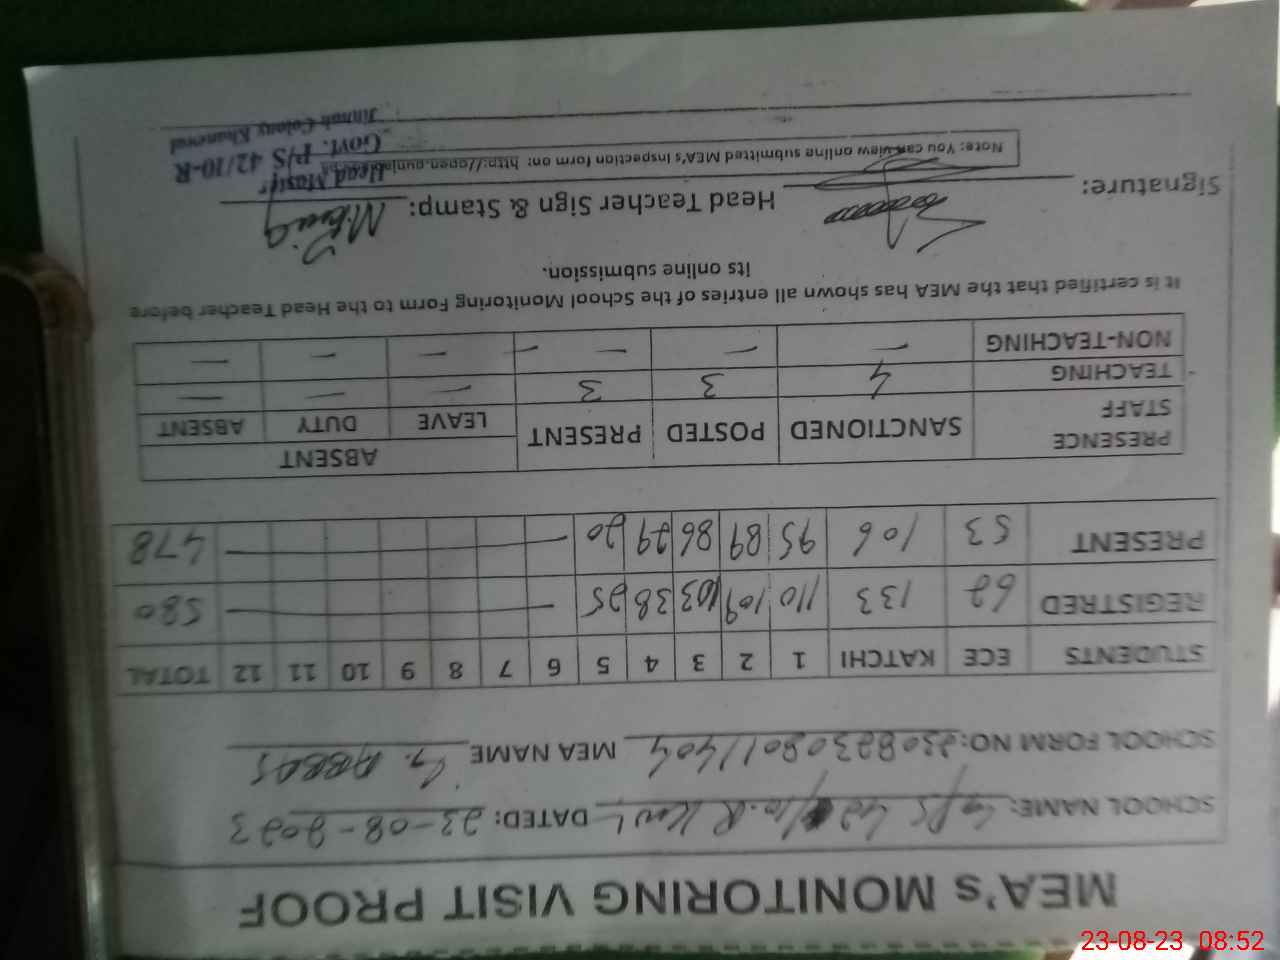 MEA's MONITORING VISIT PROOF
SCHOOL NAME: GPS 42/10.R Kwl DATED: 23-08-2023
SCHOOL FORM NO: 23082308011404 MEA NAME G. ABBAS
STUDENTS ECE KATCHI 1 2 3 4 5 6 7 8 9 10 11 12 TOTAL
REGISTRED 62 133 110 109 103 38 25 — 580
PRESENT 53 106 95 89 86 29 20 — 478
PRESENCE STAFF SANCTIONED POSTED PRESENT ABSENT
LEAVE DUTY ABSENT
TEACHING 4 3 3 — — —
NON-TEACHING — — — — — —
It is certified that the MEA has shown all entries of the School Monitoring Form to the Head Teacher before
its online submission.
Signature: Head Teacher Sign & Stamp:
Head Master
Govt. P/S 42/10-R
Jinnah Colony Khanewal
Note: You can view online submitted MEA's inspection form on: http://open.punjab
23-08-23 08:52